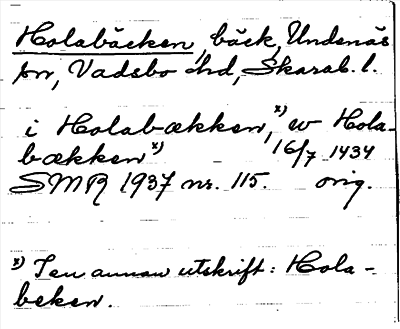 Holabäcken, bäck, Undenäs
sn, Vadsbo hd, Skarab. l.
i Holabækken,x) ov Hola-
bækkenx) 16/7 1434
SMR 1937 nr. 115. orig.
x) I en annan utskrift: Hola-
beken.